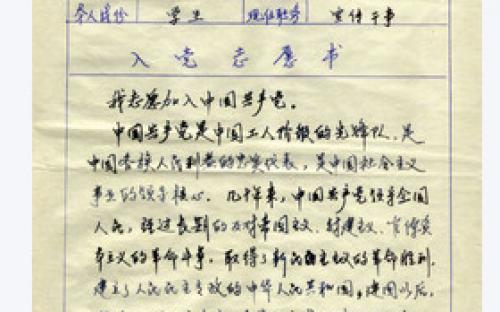 本人成份 学生 现任职务 宣传干事
入党志愿书
我志愿加入中国共产党。
中国共产党是中国工人阶级的先锋队,是
中国各族人民利益的忠实代表,是中国社会主义
事业的领导核心。几十年来,中国共产党领导全国
人民,经过长期的反对帝国主义、封建主义、官僚资
本主义的革命斗争,取得了新民主主义的革命胜利,
建立了人民民主专政的中华人民共和国;建国以后,